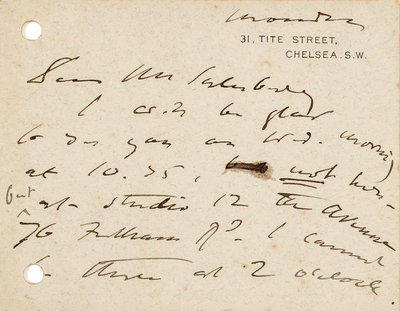 Monday
31, TITE STREET,
CHELSEA. S.W.
Dear Mr
I will be glad
to see you on Wed. morning
at 10.35, not here
but at studio 12 The Avenue
76 Fulham Rd. I cannot
be there at 2 o'clock